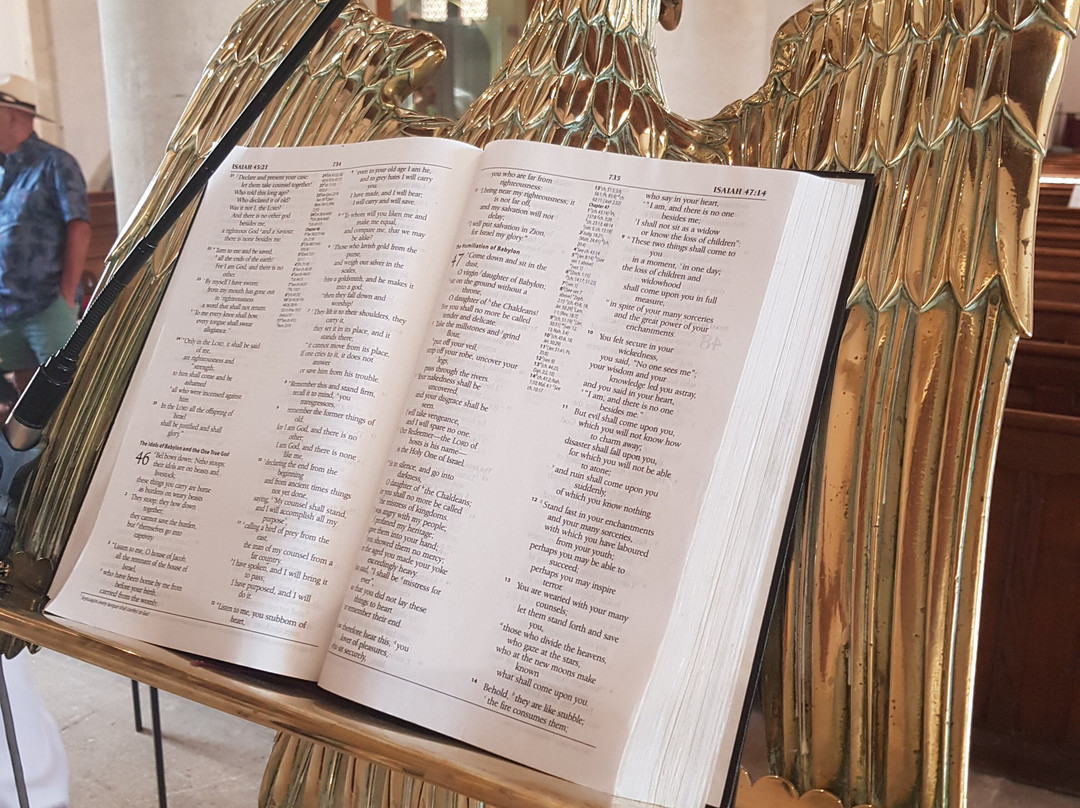 ISAIAH 45:21
734
"Declare and present your case;
let them take counsel together!
Who told this long ago?
Who declared it of old?
Was it not I, the LORD?
And there is no other god
besides me,
a righteous God and a Saviour;
there is none besides me.
"Turn to me and be saved,
all the ends of the earth!
For I am God, and there is no
other.
By myself I have sworn;
from my mouth has gone out
in righteousness
a word that shall not return:
'To me every knee shall bow,
every tongue shall swear
allegiance.'
"Only in the LORD, it shall be said
of me,
are righteousness and
strength;
to him shall come and be
ashamed
all who were incensed against
him.
In the LORD all the offspring of
Israel
shall be justified and shall
glory."
The Idols of Babylon and the One True God
46 Bel bows down; Nebo stoops;
their idols are on beasts and
livestock;
these things you carry are borne
as burdens on weary beasts.
2 They stoop; they bow down
together;
they cannot save the burden,
but themselves go into
captivity.
3 "Listen to me, O house of Jacob,
all the remnant of the house of
Israel,
who have been borne by me from
before your birth,
carried from the womb;
4 even to your old age I am he,
and to grey hairs I will carry
you.
I have made, and I will bear;
I will carry and will save.
5 "To whom will you liken me and
make me equal,
and compare me, that we may
be alike?
6 Those who lavish gold from the
purse,
and weigh out silver in the
scales,
hire a goldsmith, and he makes it
into a god;
then they fall down and
worship!
7 They lift it to their shoulders, they
carry it,
they set it in its place, and it
stands there;
it cannot move from its place.
If one cries to it, it does not
answer
or save him from his trouble.
8 "Remember this and stand firm,
recall it to mind, you
transgressors,
9 remember the former things of
old;
for I am God, and there is no
other;
I am God, and there is none
like me,
10 declaring the end from the
beginning
and from ancient times things
not yet done,
saying, 'My counsel shall stand,
and I will accomplish all my
purpose',
11 calling a bird of prey from the
east,
the man of my counsel from a
far country.
I have spoken, and I will bring it
to pass;
I have purposed, and I will
do it.
12 "Listen to me, you stubborn of
heart,
735
ISAIAH 47:14
you who are far from
righteousness:
I bring near my righteousness; it
is not far off,
and my salvation will not
delay;
I will put salvation in Zion,
for Israel my glory."
The Humiliation of Babylon
47 Come down and sit in the
dust,
O virgin daughter of Babylon;
sit on the ground without a
throne,
O daughter of the Chaldeans!
For you shall no more be called
tender and delicate.
Take the millstones and grind
flour,
put off your veil,
strip off your robe, uncover your
legs,
pass through the rivers.
Your nakedness shall be
uncovered,
and your disgrace shall be
seen.
I will take vengeance,
and I will spare no one.
Our Redeemer—the LORD of
hosts is his name—
is the Holy One of Israel.
Sit in silence, and go into
darkness,
O daughter of the Chaldeans;
for you shall no more be called
the mistress of kingdoms.
I was angry with my people;
I profaned my heritage;
I gave them into your hand;
you showed them no mercy;
on the aged you made your yoke
exceedingly heavy.
You said, "I shall be mistress for
ever",
so that you did not lay these
things to heart
or remember their end.
Now therefore hear this, you
lover of pleasures,
who sit securely,
who say in your heart,
"I am, and there is no one
besides me;
I shall not sit as a widow
or know the loss of children":
9 These two things shall come to
you
in a moment, in one day;
the loss of children and
widowhood
shall come upon you in full
measure,
in spite of your many sorceries
and the great power of your
enchantments.
10 You felt secure in your
wickedness,
you said, "No one sees me";
your wisdom and your
knowledge led you astray,
and you said in your heart,
"I am, and there is no one
besides me."
11 But evil shall come upon you,
which you will not know how
to charm away;
disaster shall fall upon you,
for which you will not be able
to atone;
and ruin shall come upon you
suddenly,
of which you know nothing.
12 Stand fast in your enchantments
and your many sorceries,
with which you have laboured
from your youth;
perhaps you may be able to
succeed;
perhaps you may inspire
terror.
13 You are wearied with your many
counsels;
let them stand forth and save
you,
those who divide the heavens,
who gaze at the stars,
who at the new moons make
known
what shall come upon you.
14 Behold, they are like stubble;
the fire consumes them;